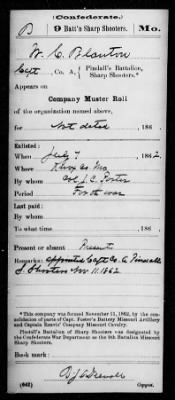 (Confederate.)
B 9 Batt'n Sharp Shooters. Mo.
W. C. Blanton
Capt, Co. A, Pindall's Battalion, Sharp Shooters.*
Appears on
Company Muster Roll
of the organization named above,
for Not dated, 186 .
Enlisted:
When July 7, 1862
Where Knox Co Mo
By whom Col J. C. Porter
Period For the war
Last paid:
By whom
To what time , 186 .
Present or absent Present
Remarks: Appointed Capt Co. A Pindall's
S. Shooters Nov 11. 1862
*This company formed November 11, 1862, by the consolidation of parts of Capt. Foster's Battery Missouri Artillery and Captain Reeves' Company Missouri Cavalry.
Pindall's Battalion of Sharp Shooters was designated by the Confederate War Department as the 9th Battalion Missouri Sharp Shooters.
Book mark:
(642) Copyist.